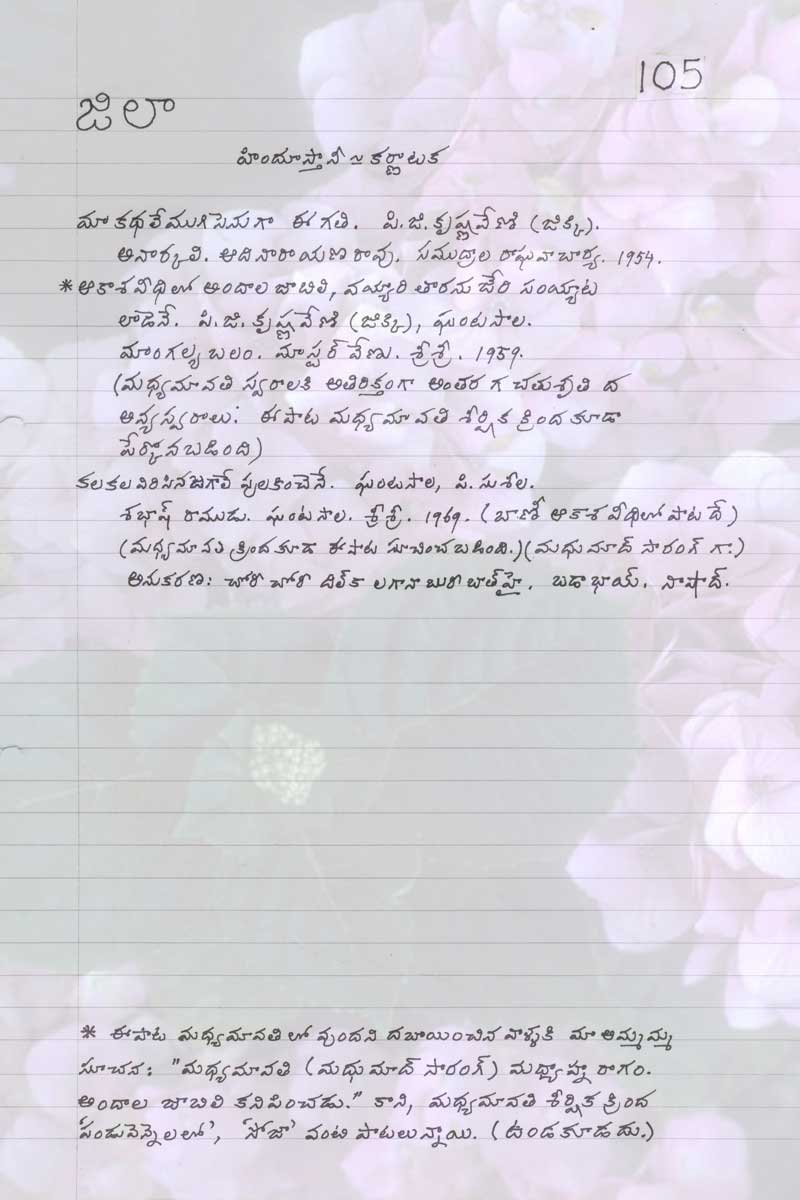 105
జిలా
హిందూస్తానీ ~ కర్ణాటక
మా కథలే ముగిసెనుగా ఈ గతి. పి.జి.కృష్ణవేణి (జిక్కి).
అనార్కలి. ఆదినారాయణ రావు. సముద్రాల రాఘవాచార్య. 1954.
* ఆకాశవీధిలో అందాల జాబిలి, వయ్యారి తారను జేరి సయ్యాట
లాడెనే. పి.జి.కృష్ణవేణి (జిక్కి), ఘంటసాల.
మాంగల్యబలం. మాస్టర్ వేణు. శ్రీశ్రీ. 1959.
(మధ్యమావతి స్వరాలకి అతిరిక్తంగా అంతర గ చతుశ్రుతి ద
అన్యస్వరాలు: ఈ పాట మధ్యమావతి శీర్షిక క్రింద కూడా
పేర్కొనబడింది)
కలకల విరిసిన జగాలే పులకించెనే. ఘంటసాల, పి.సుశీల.
శభాష్ రాముడు. ఘంటసాల. శ్రీశ్రీ. 1969. (బాణీ ఆకాశవీధిలో పాటదే)
(మధ్యమావతి క్రింద కూడా ఈ పాట సూచించబడింది.)(మధుమాద్ సారంగ్ గా.)
అనుకరణ: చోరీ చోరీ దిల్‌కా లగానా బురీ బాత్‌హై. బడా భాయ్. నాషాద్.
* ఈ పాట మధ్యమావతిలో వుందని దబాయించిన వాళ్ళకి మా అమ్మమ్మ
సూచన: "మధ్యమావతి (మధుమాద్ సారంగ్) మధ్యాహ్న రాగం.
అందాల జాబిలి కనిపించడు." కాని, మధ్యమావతి శీర్షిక క్రింద
'పండువెన్నెలలో', 'సోజా' వంటి పాటలున్నాయి. (ఉండకూడదు.)